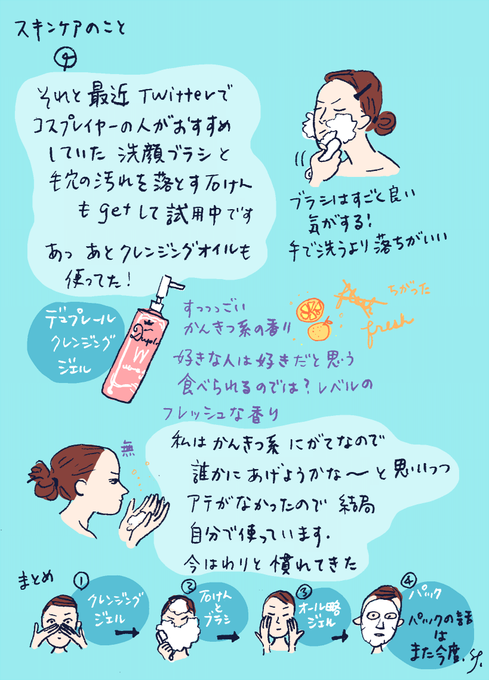 スキンケアのこと
④
それと最近Twitterで
コスプレイヤーの人がおすすめ
していた洗顔ブラシと
毛穴の汚れを落とす石けん
もgetして試用中です
あっ あとクレンジングオイルも
使ってた!
ブラシはすごく良い
気がする!
手で洗うより落ちがいい
デュプレール
クレンジング
ジェル
すっっっごい
かんきつ系の香り
ちがった
fresh
好きな人は好きだと思う
食べられるのでは?レベルの
フレッシュな香り
無
私はかんきつ系にがてなので
誰かにあげようかな〜と思いつつ
アテがなかったので結局
自分で使っています.
今はわりと慣れてきた
まとめ
①
クレンジング
ジェル
②
石けん
と
ブラシ
③
オール略
ジェル
④
パック
パックの話
は
また今度.